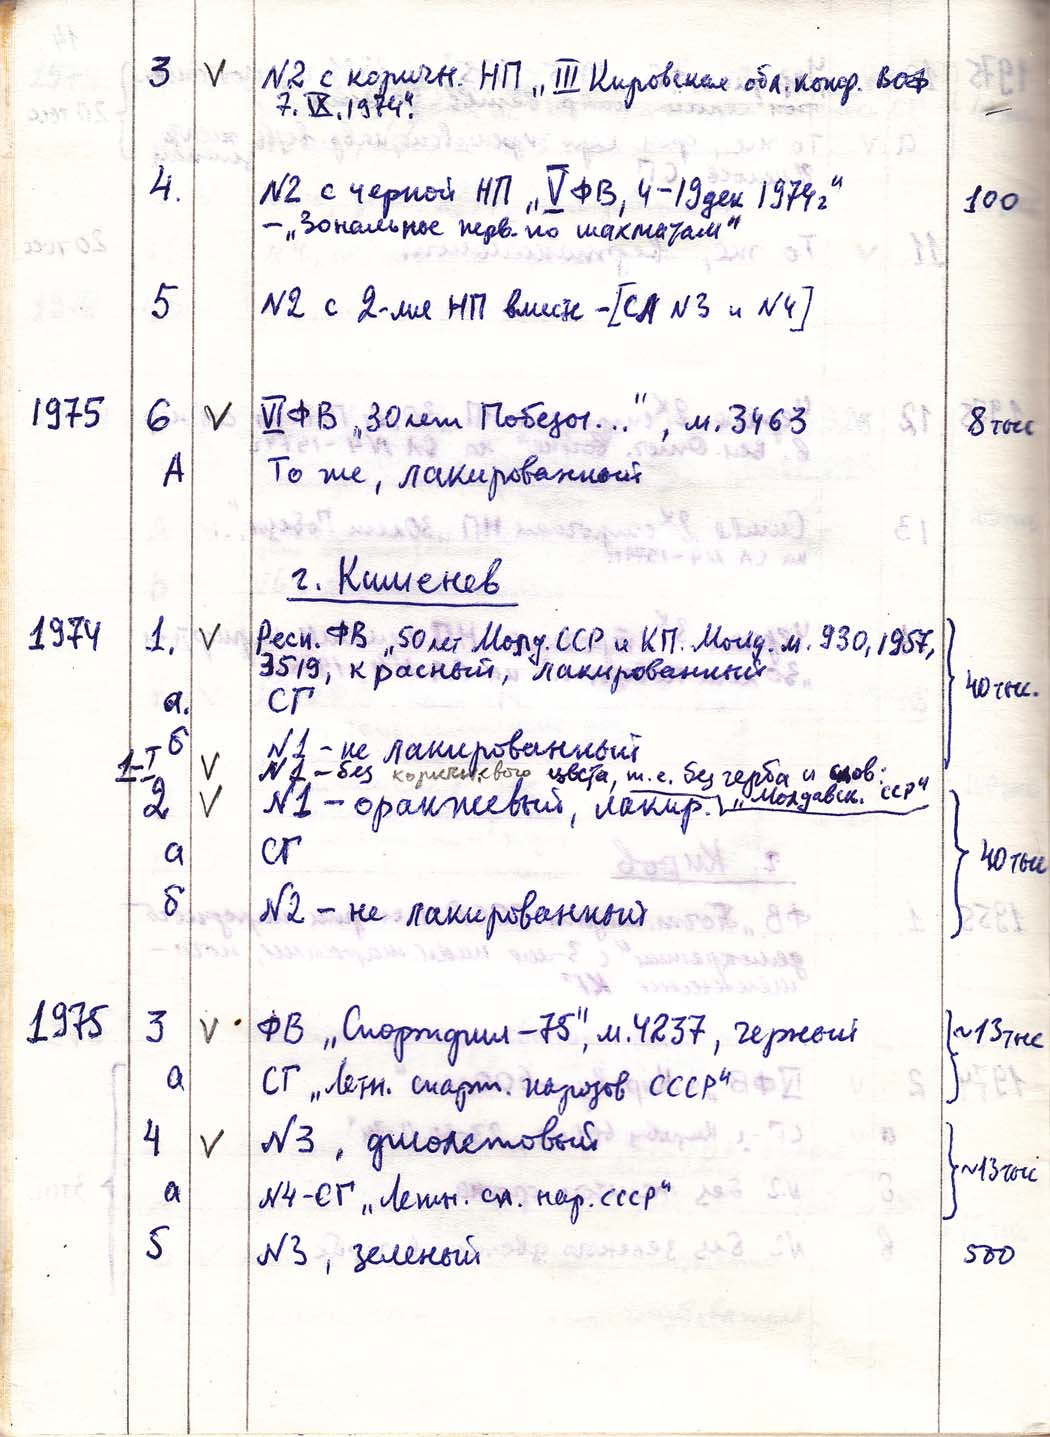 3 V N2 с коричн. НП „III Кировская обл. конф. ВОФ
7.IX.1974“.
4. N2 с черной НП „V ФВ, 4-19 дек 1974г“ 100
-„Зональные перв. по шахматам“
5 N2 с 2-мя НП вместе -[СЛ N3 и N4]
1975 6 V VI ФВ „30 лет Победы...“, м. 3463 8 тыс
А То же, лакированный
г. Кишенев
1974 1. V Респ. ФВ „50 лет Молд. ССР и КП. Молд. м. 930, 1957,
3519, красный, лакированный 40 тыс.
а. СГ
б N1 - не лакированный
1-Т V N1 - без коричневого цвета, т.е. без герба и слов:
2 V N1 - оранжевый, лакир. „Молдавск. ССР“
а СГ 40 тыс
б N2 - не лакированный
1975 3 V ФВ „Спортфил-75“, м. 4237, черный ~13 тыс
а СГ „Летн. спарт. народов СССР“
4 V N3, фиолетовый
а N4-СГ „Летн. сп. нар. СССР“ ~13 тыс
5 N3, зеленый 500